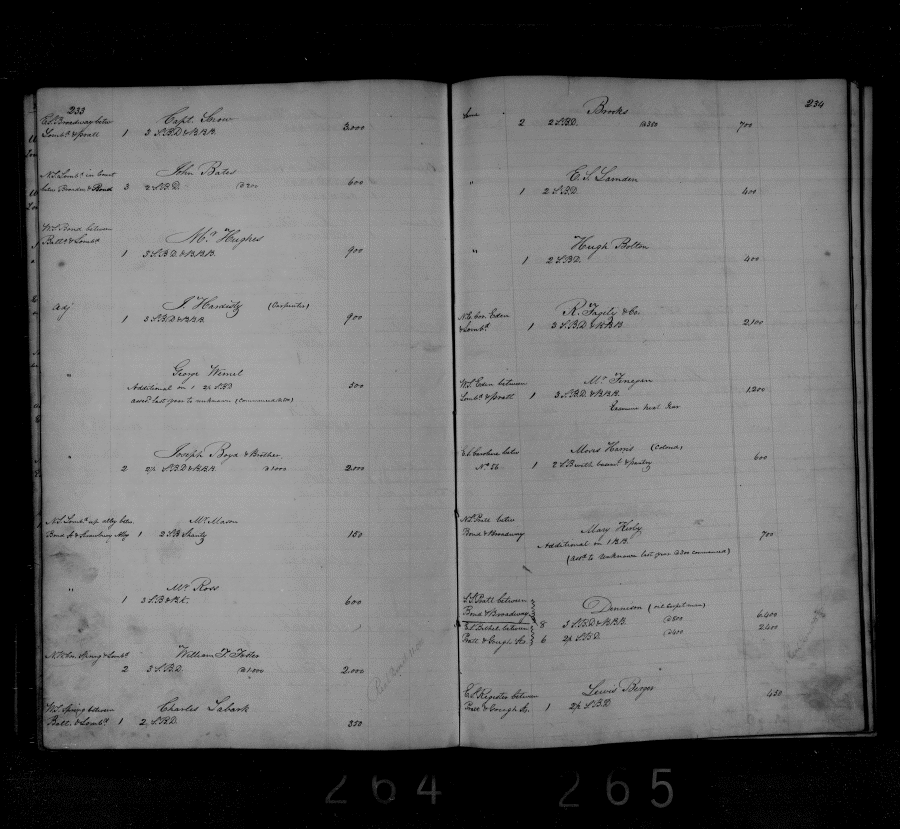 233
E.S. Broadway betw Capt. Snow
Lombd & Pratt 1 3 S.B.D & B.B.B. 3.000
N.S. Lombd in Court John Bates
betw Broadw & Bond 3 2 S.B.D. @ 200 600
W.S. Bond between Mr Hughes
Balto & Lombd 1 3 S.B.D. & B.B.B. 900
Adj J. Hardisty (Carpenter)
1 3 S.B.D & B.B.B. 900
" George
Additional on 1 2½ S.B.D 300
assd last year to unknown (Commenced @ 200)
" Joseph Boyd & Brother
2 2½ S.B.D & B.B.B. @ 1000 2.000
N.S. Lombd up alley betw Mr Mason
Bond St & Strawberry Aly 1 2 S.B Shanty 150
" Mr Ross
1 3 S.B & B.K. 600
N.W. Cor. Spring & Lombd William T. Foster
2 3 S.B.D @ 1.000 2.000
W.S. Spring between Charles Labark
Balt. & Lombd 1 2 S.B.D. 350
234
Same Brooks
2 2 S.B.D. @ 350 700
" E. S. Lamden
1 2 S.B.D. 400
" Hugh Bolton
1 2 S.B.D. 400
N.E. Cor. Eden R. & Co.
& Lombd 1 3 S.B.D. & B.B.B. 2.100
W.S. Eden between Mr Finegan
Lombd & Pratt 1 3 S.B.D. & B.B.B. 1.200
Examine Next Year
E.S. Caroline betw Moses Harris (Colored)
No 56 1 2 S.B with basemt & pantry 600
N.S. Pratt betw Mary Kirby
Bond & Broadway Additional on 1 B.B. 700
(assd to unknown last year @ 300 commenced)
S.S. Pratt between
Bond & Broadway Dennison (oil Carpet man)
E.S. Bethel between 8 3 S.B.D & B.B.B. @ 800 6.400
Pratt & Gough St. 6 2½ S.B.D. @ 400 2.400
E.S. Register between Lewis Berger 450
Pratt & Gough St. 1 2½ S.B.D
264 265